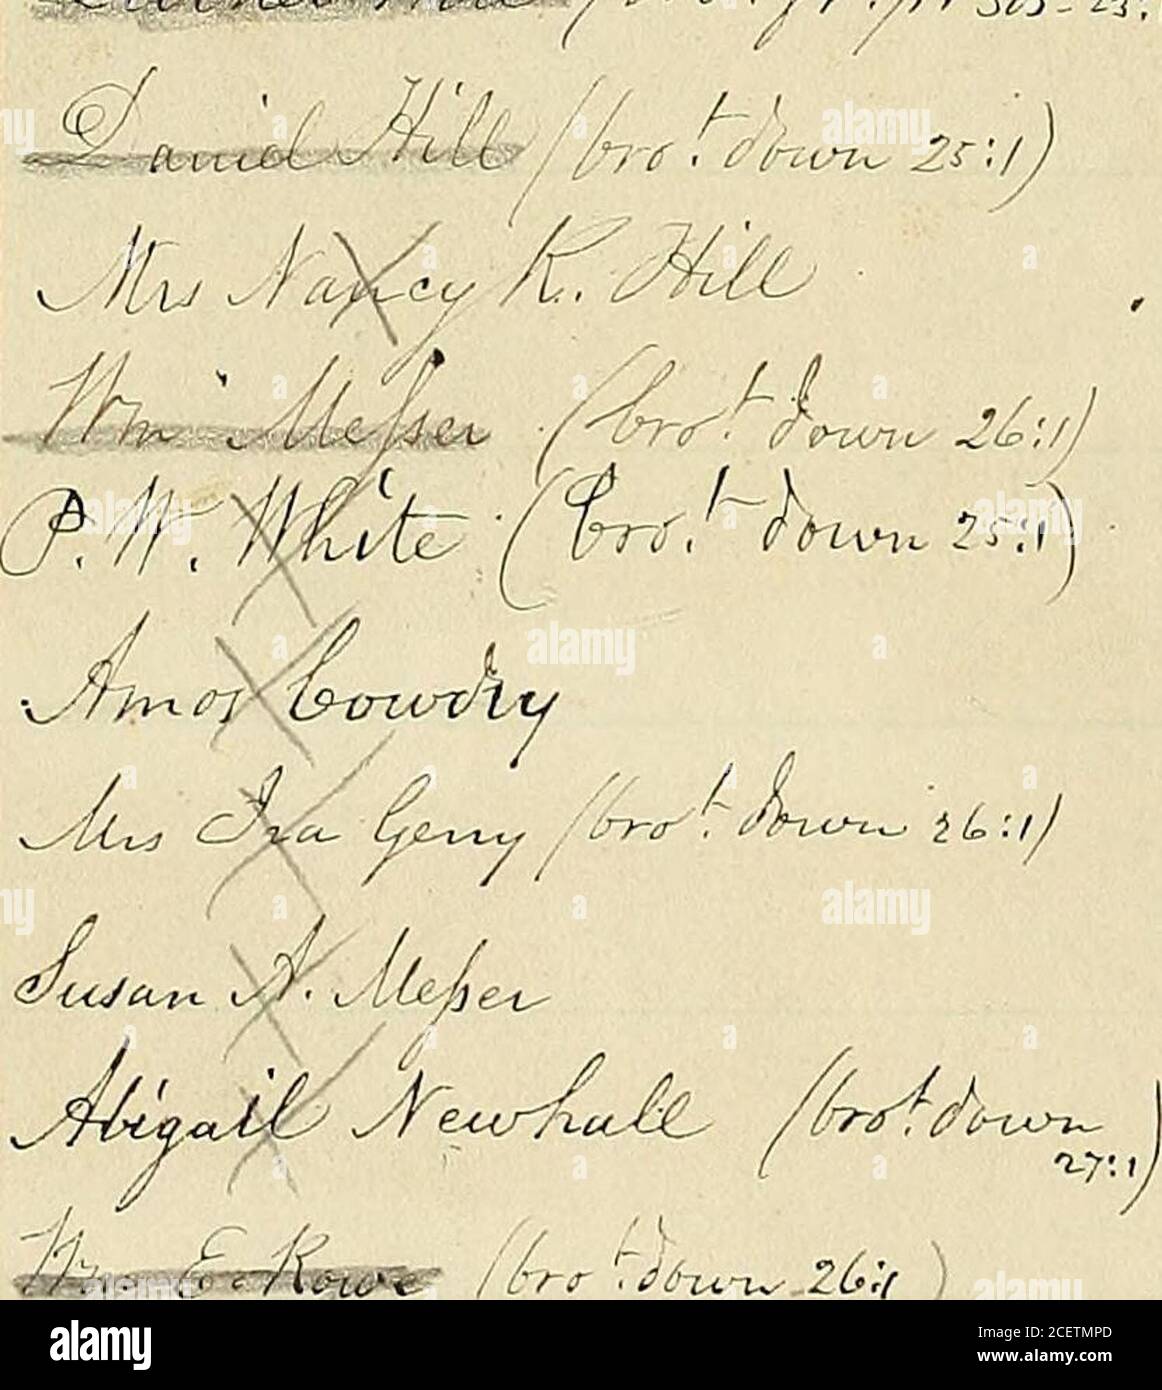 Daniel Hill (bro.t down 25:1)
Mrs Nancy K. Hill
Wm Messer (bro.t down 26:1)
P. W. White (bro.t down 25:1)
Amos Cowdry
Mrs Ira Gerry (bro.t down 26:1)
Susan N. Messer
Abigail Newhall (bro.t down
27:1)
Wm E. Rowe (bro.t down 26:1)
alamy
Image ID: 2CETMPD
www.alamy.com